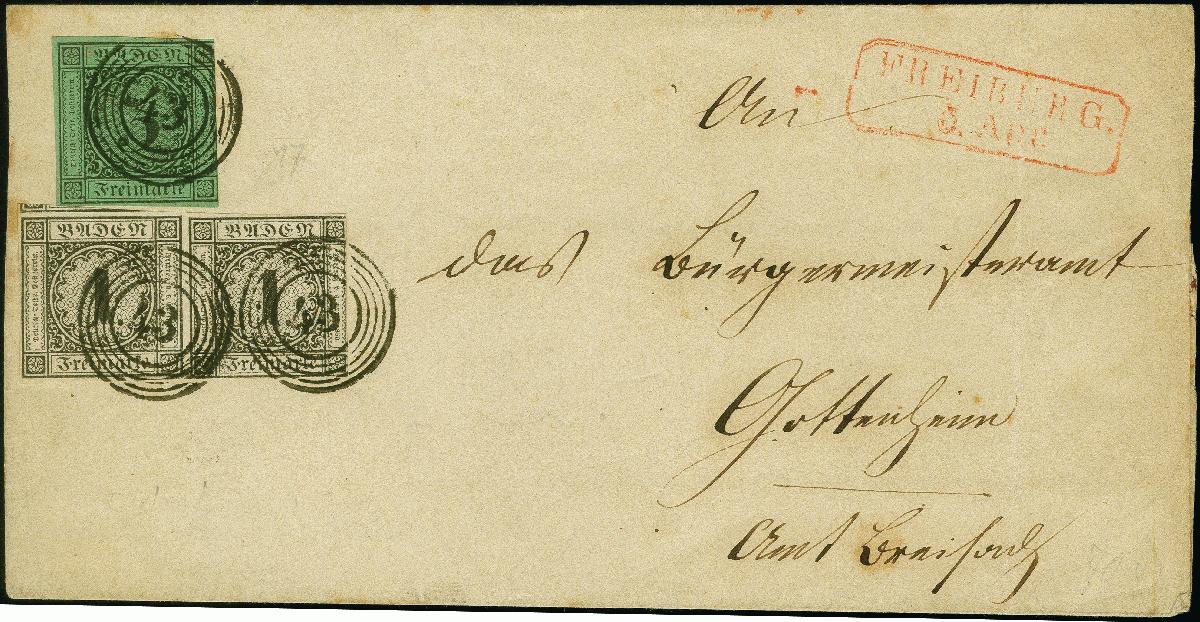 BADEN
3
43
Freimarke
17
BADEN BADEN
1. 1.
43 43
Freimarke Freimarke
FREIBURG.
5. Apr
An
das Bürgermeisteramt
Gottenheim
Amt Breisach